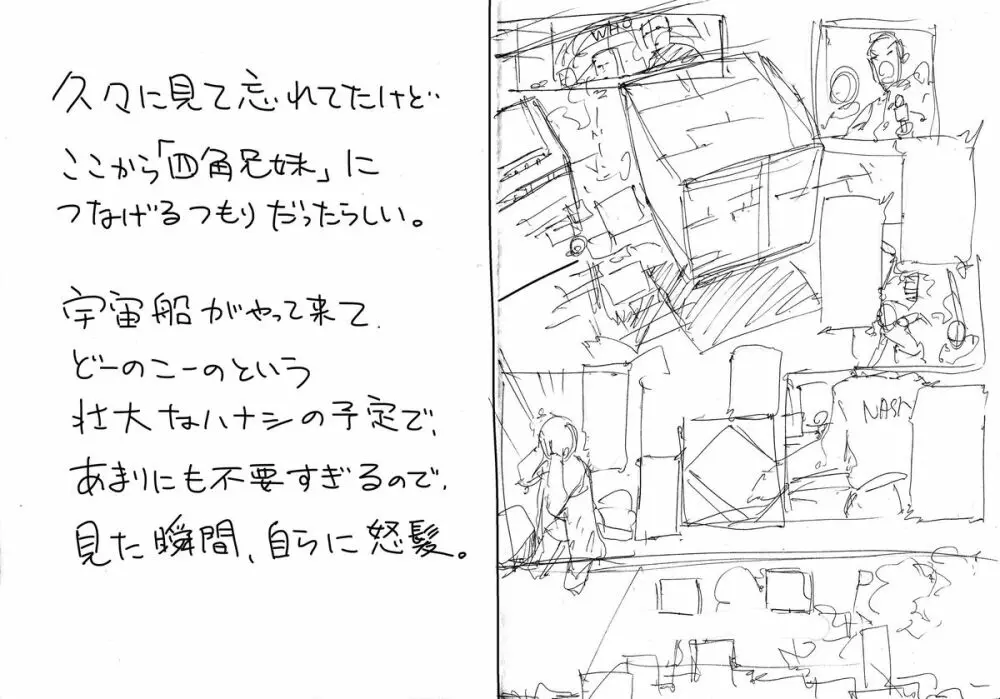 久々に見て忘れてたけど
ここから「四角兄妹」に
つなげるつもりだったらしい。
宇宙船がやって来て
どーのこーのという
壮大なハナシの予定で、
あまりにも不要すぎるので、
見た瞬間、自らに怒髪。
WHO
NASA